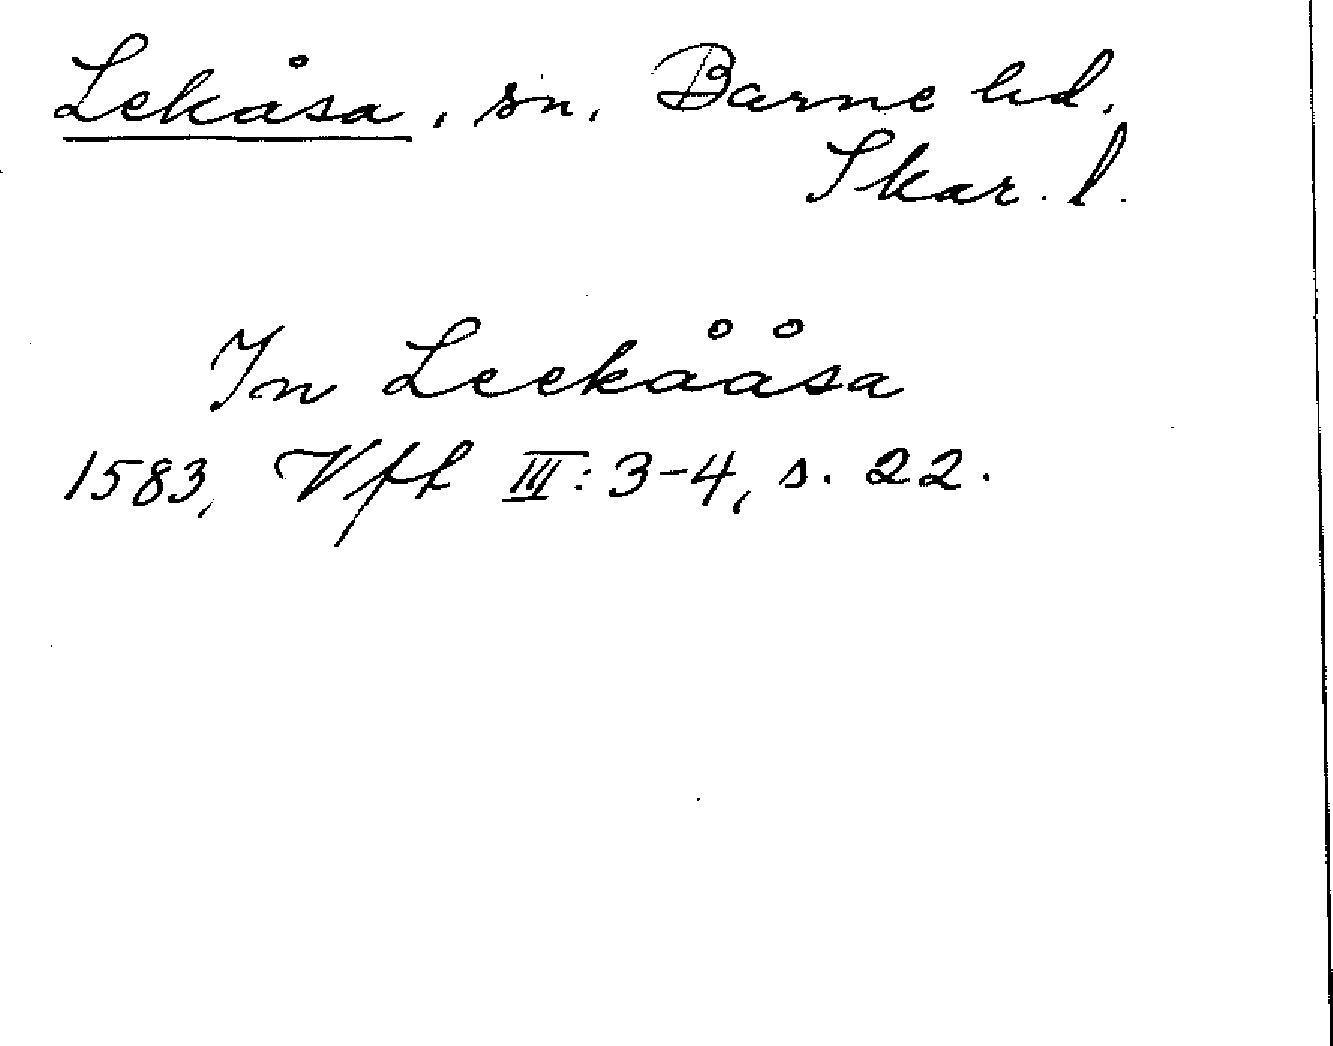 Lekåsa, sn, Barne hd,
Skar. l.
In Leekååsa
1583, Vfh III: 3-4, s. 22.